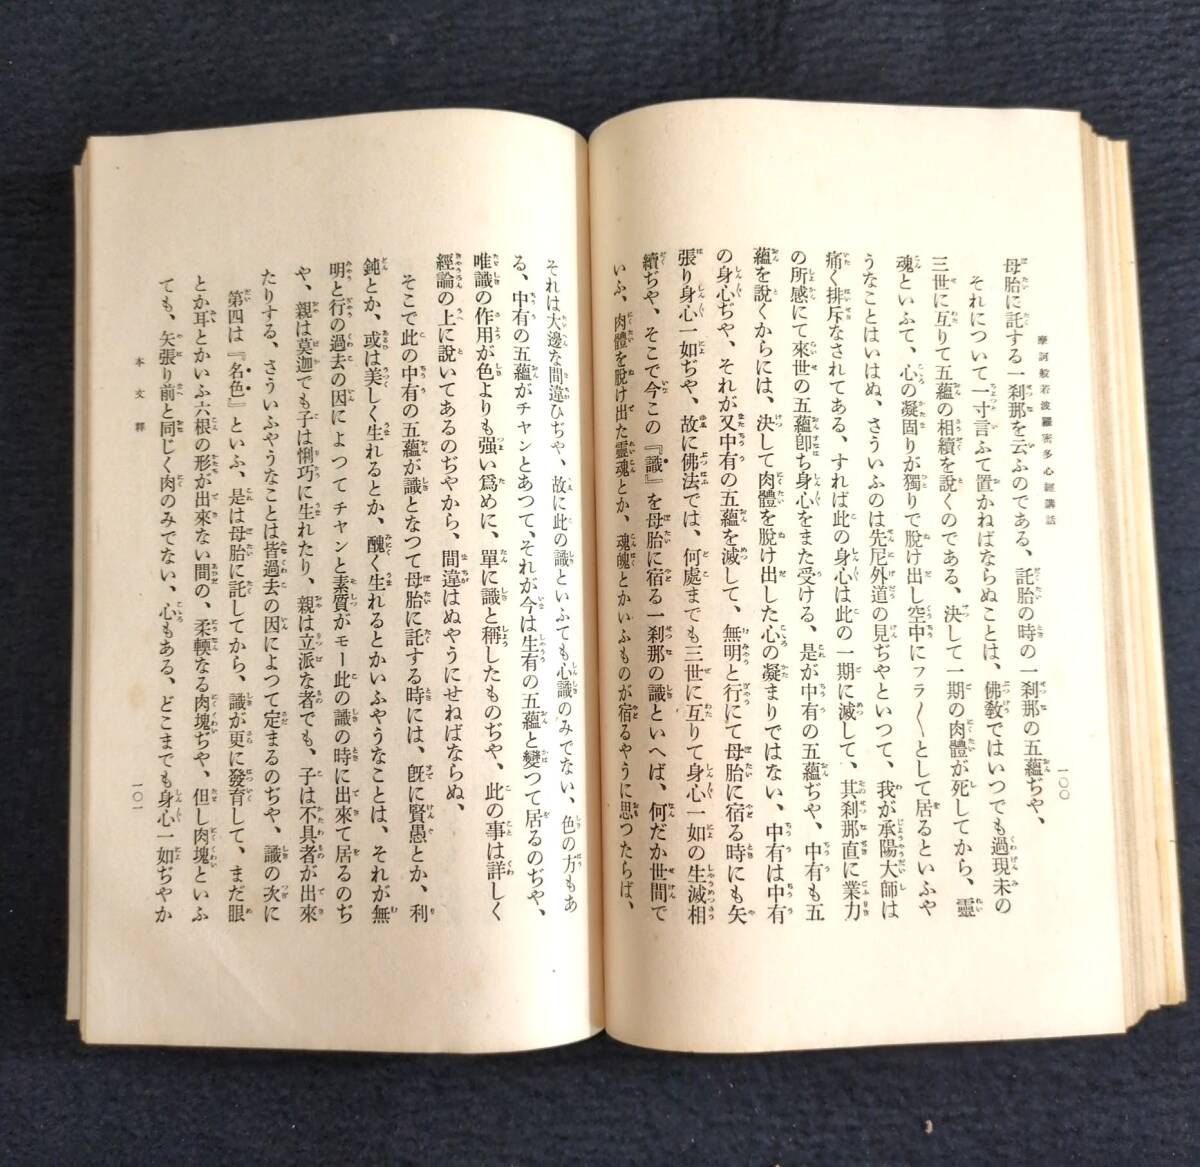 摩訶般若波羅密多心經講話
一〇〇
母胎に託する一刹那を云ふのである、託胎の時の一刹那の五蘊ぢや、
それについて一寸言ふて置かねばならぬことは、佛敎ではいつでも過現未の
三世に亙りて五蘊の相續を說くのである、決して一期の肉體が死してから、靈
魂といふて、心の凝固りが獨りで脫け出し空中にフラ〳〵として居るといふや
うなことはいはぬ、さういふのは先尼外道の見ぢやといつて、我が承陽大師は
痛く排斥なされてある、すれば此の身心は此の一期に滅して、其刹那直に業力
の所感にて來世の五蘊卽ち身心をまた受ける、是が中有の五蘊ぢや、中有も五
蘊を說くからには、決して肉體を脫け出した心の凝まりではない、中有は中有
の身心ぢや、それが又中有の五蘊を滅して、無明と行にて母胎に宿る時にも矢
張り身心一如ぢや、故に佛法では、何處までも三世に亙りて身心一如の生滅相
續ぢや、そこで今この『識』を母胎に宿る一刹那の識といへば、何だか世間で
いふ、肉體を脫け出た靈魂とか、魂魄とかいふものが宿るやうに思つたらば、
それは大邊な間違ひぢや、故に此の識といふても心識のみでない、色の方もあ
る、中有の五蘊がチャンとあつて、それが今は生有の五蘊と變つて居るのぢや、
唯識の作用が色よりも强い爲めに、單に識と稱したものぢや、此の事は詳しく
經論の上に說いてあるのぢやから、間違はぬやうにせねばならぬ、
そこで此の中有の五蘊が識となつて母胎に託する時には、旣に賢愚とか、利
鈍とか、或は美しく生れるとか、醜く生れるとかいふやうなことは、それが無
明と行の過去の因によつてチャンと素質がモー此の識の時に出來て居るのぢ
や、親は莫迦でも子は悧巧に生れたり、親は立派な者でも、子は不具者が出來
たりする、さういふやうなことは皆過去の因によつて定まるのぢや、識の次に
第四は『名色』といふ、是は母胎に託してから、識が更に發育して、まだ眼
とか耳とかいふ六根の形が出來ない間の、柔輭なる肉塊ぢや、但し肉塊といふ
ても、矢張り前と同じく肉のみでない、心もある、どこまでも身心一如ぢやか
本文釋
一〇一